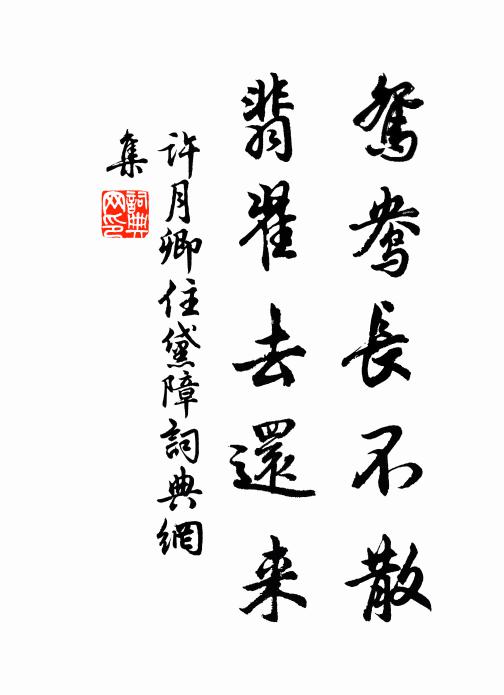 鴛鴦長不散
翡翠去還来
許月卿住黛障詞典網
集
詞典
网印